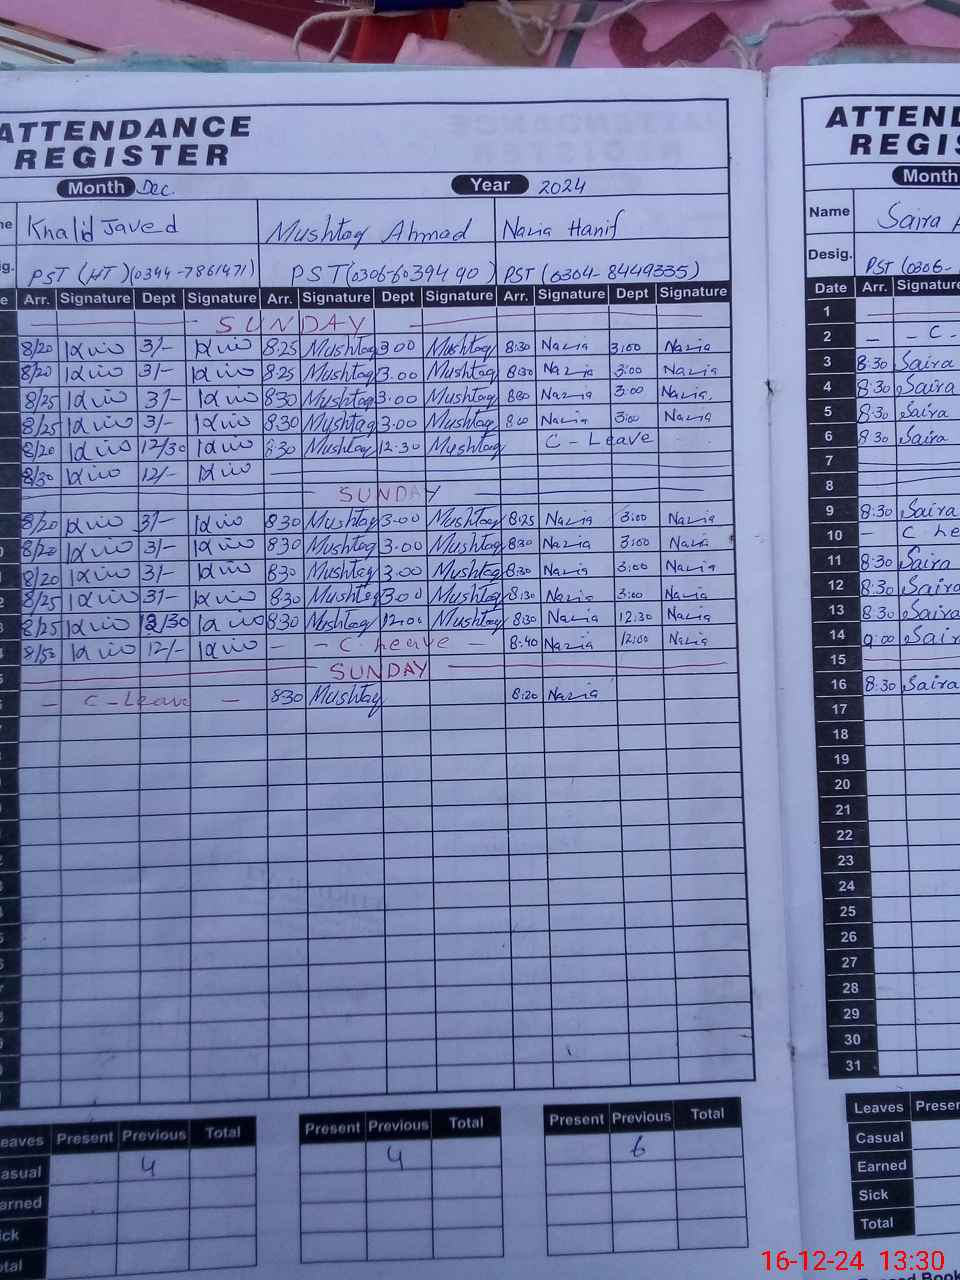 ATTENDANCE
REGISTER
Month Dec. Year 2024
Khalid Javed Mushtaq Ahmad Nazia Hanif
PST (HT)(0344-7861471) PST(0306-6039490) PST (0304-8449335)
Arr. Signature Dept Signature Arr. Signature Dept Signature Arr. Signature Dept Signature
SUNDAY
8/20 3/- 8.25 Mushtaq 3.00 Mushtaq 8:30 Nazia 3:00 Nazia
8/20 3/- 8.25 Mushtaq 3.00 Mushtaq 8:30 Nazia 3:00 Nazia
8/25 3/- 8.30 Mushtaq 3.00 Mushtaq Nazia 3:00 Nazia
8/25 3/- 8.30 Mushtaq 3.00 Mushtaq Nazia 3:00 Nazia
8/20 12/30 8.30 Mushtaq 12.30 Mushtaq C - Leave
8/30 12/-
SUNDAY
8/20 3/- 8.30 Mushtaq 3.00 Mushtaq 8:25 Nazia 3:00 Nazia
8/20 3/- 8.30 Mushtaq 3.00 Mushtaq 8:30 Nazia 3:00 Nazia
8/20 3/- 8.30 Mushtaq 3.00 Mushtaq 8:30 Nazia 3:00 Nazia
8/25 3/- 8.30 Mushtaq 3.00 Mushtaq 8:30 Nazia 3:00 Nazia
8/25 12/30 8.30 Mushtaq 12.00 Mushtaq 8:30 Nazia 12:30 Nazia
12/- - - C. Leave - 8:40 Nazia 12:00 Nazia
SUNDAY
- C - Leave - 8.30 Mushtaq 8:20 Nazia
Leaves Present Previous Total Present Previous Total Present Previous Total
Casual 4 4 6
Earned
Sick
Total
ATTEND
REGIS
Month
Name Saira A
Desig. PST (0306-
Date Arr. Signature
1
2 - - C -
3 8:30 Saira
4 8:30 Saira
5 8:30 Saira
6 8:30 Saira
7
8
9 8:30 Saira
10 - C Le
11 8:30 Saira
12 8:30 Saira
13 8:30 Saira
14 9:00 Saira
15
16 8:30 Saira
17
18
19
20
21
22
23
24
25
26
27
28
29
30
31
Leaves Present
Casual
Earned
Sick
Total
16-12-24 13:30